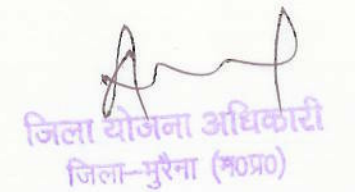 जिला योजना अधिकारी
जिला-मुरैना (म०प्र०)